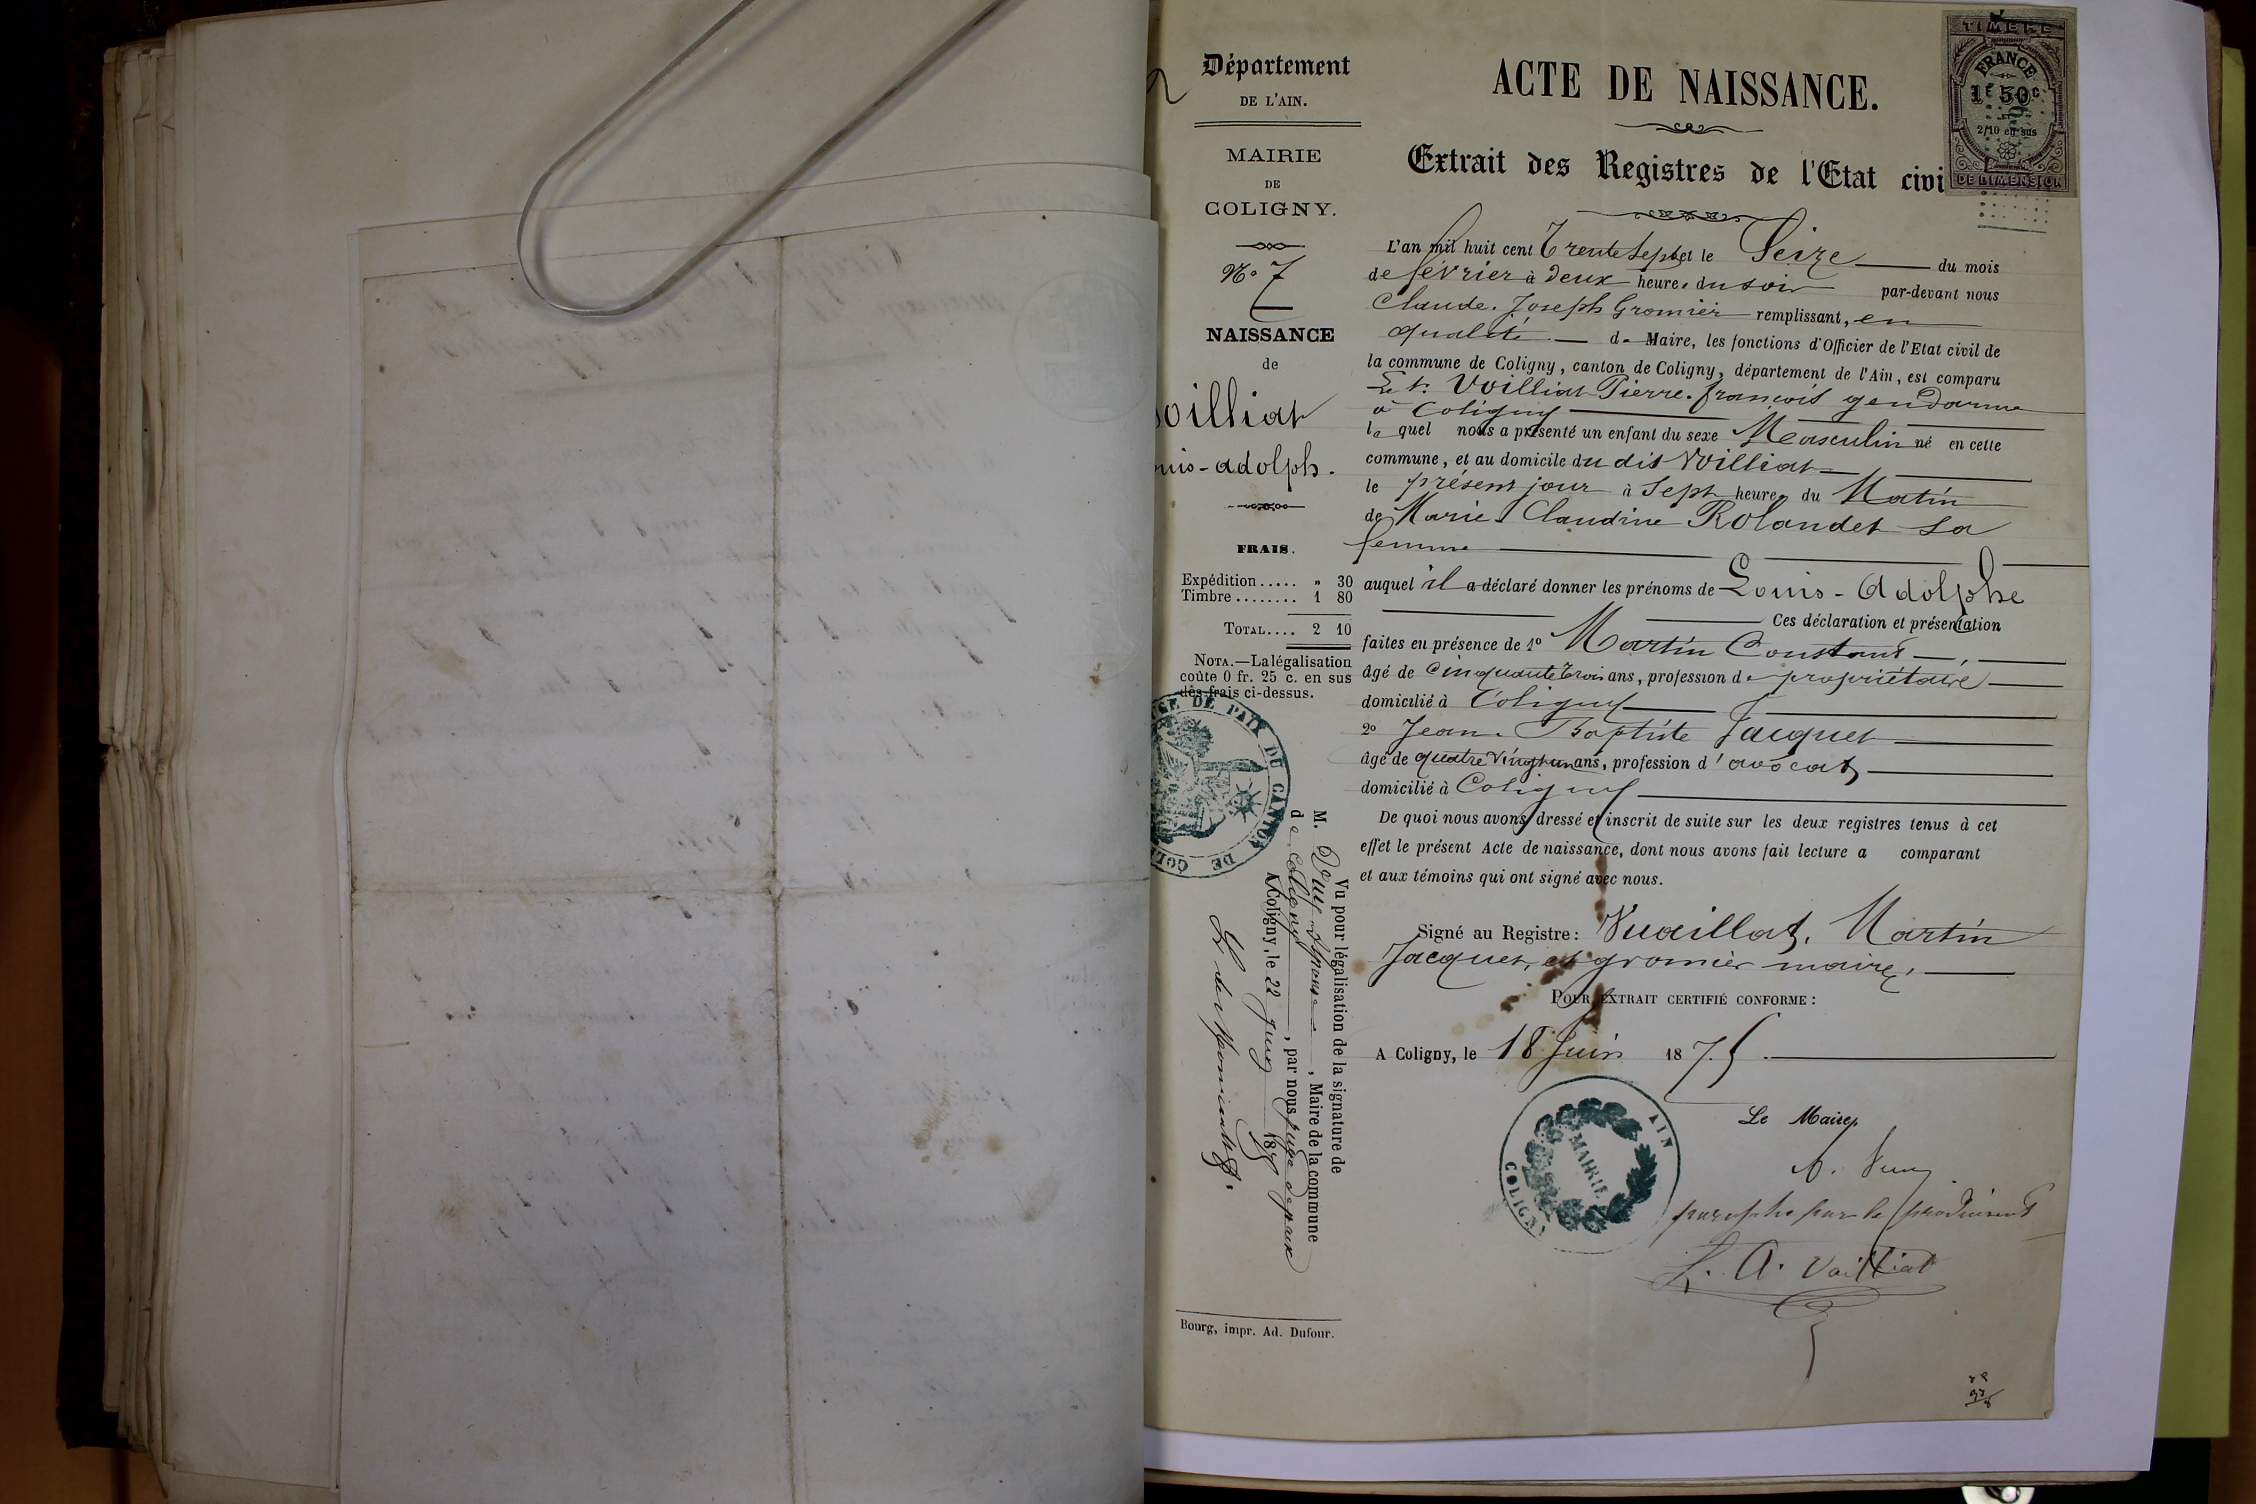 Département
DE L'AIN.
MAIRIE
DE
COLIGNY.
No 7
NAISSANCE
de
Voilliat
ouis-adolph.
FRAIS.
Expédition..... » 30
Timbre........ 1 80
TOTAL.... 2 10
NOTA.—La légalisation
coûte 0 fr. 25 c. en sus
dès frais ci-dessus.
GE DE PAIX DU CANTON DE COL
Vu pour légalisation de la signature de
M. Vuy Alphonse, Maire de la commune
de Coligny, par nous juge de paix
A Coligny, le 22 juin 1875
Bourg, impr. Ad. Dufour.
TIMBRE
FRANCE
1F 50c
2/10 en sus
DE DIMENSION
ACTE DE NAISSANCE.
Extrait des Registres de l'Etat civi
L'an mil huit cent Trente Sept et le Seize du mois
de février à deux heures du soir par-devant nous
Claude. Joseph Gromier remplissant, en
qualité de Maire, les fonctions d'Officier de l'Etat civil de
la commune de Coligny, canton de Coligny, département de l'Ain, est comparu
Le Sr. Voilliat Pierre. françois gendarme
à Coligny
lequel nous a présenté un enfant du sexe Masculin né en cette
commune, et au domicile du dit Voilliat
le présent jour à Sept heures du Matin
de Marie Claudine Rolandet sa
femme
auquel il a déclaré donner les prénoms de Louis-Adolphe
Ces déclaration et présentation
faites en présence de 1o Martin Constant
âgé de cinquante trois ans, profession de propriétaire
domicilié à Coligny
2o Jean. Baptiste Jacquet
âgé de quatre vingt un ans, profession d'avocat
domicilié à Coligny
De quoi nous avons dressé et inscrit de suite sur les deux registres tenus à cet
effet le présent Acte de naissance, dont nous avons fait lecture a comparant
et aux témoins qui ont signé avec nous.
Signé au Registre: Vuaillat, Martin
Jacquet, et gromier maire,
POUR EXTRAIT CERTIFIÉ CONFORME :
A Coligny, le 18 Juin 1875
AIN
MAIRIE
COLIGNY
Le Maire,
A. Vuy
paraphe par le produisant
L. A. Voilliat